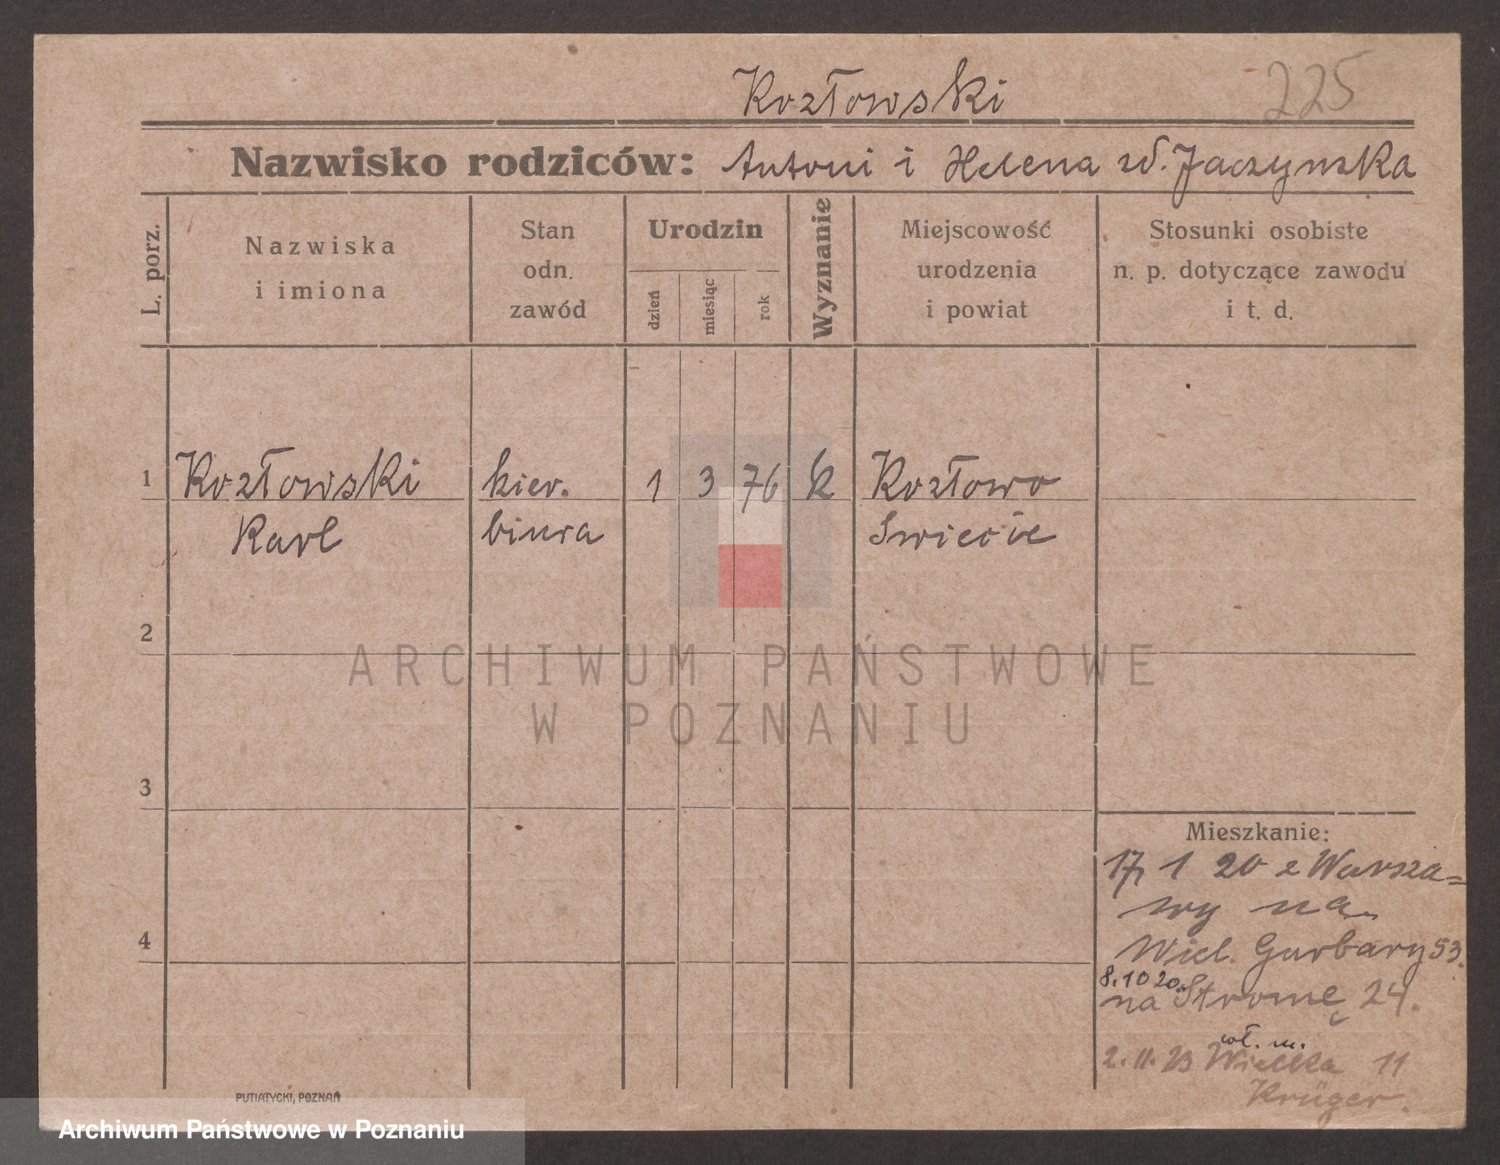 Kozłowski
225
Nazwisko rodziców: Antoni i Helena zd. Jaczynska
L. porz.
Nazwiska
i imiona
Stan
odn.
zawód
Urodzin
dzień
miesiąc
rok
Wyznanie
Miejscowość
urodzenia
i powiat
Stosunki osobiste
n. p. dotyczące zawodu
i t. d.
1 Kozłowski kier. 1 3 76 k Kozłowo
Karl biura Swiecie
2
ARCHIWUM PAŃSTWOWE
W POZNANIU
3
Mieszkanie:
17, 1 20 z Warsza=
wy na
4
Wiel. Garbary 53.
8.10 20.
na Stromę 24.
wł. m.
2. 11. 23 Wielka 11
Krüger.
PUTIATYCKI, POZNAŃ
Archiwum Państwowe w Poznaniu